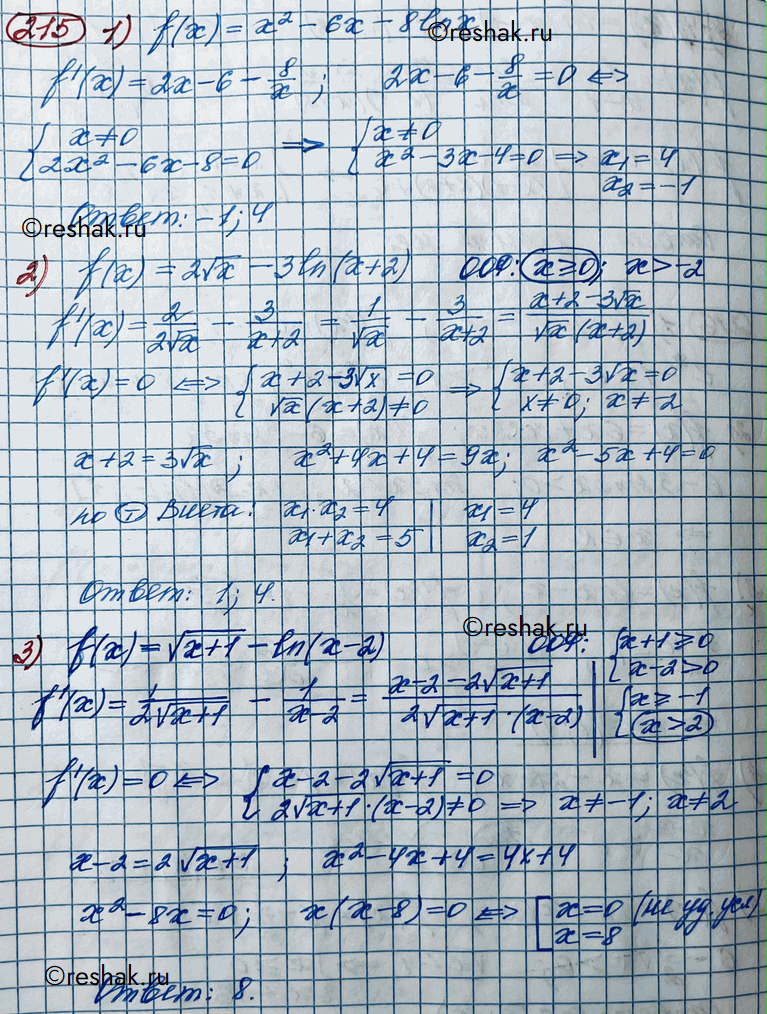 215 1) f(x) = x² - 6x - 8lnx
©reshak.ru
f'(x) = 2x - 6 - 8/x ; 2x - 6 - 8/x = 0 ⟺
{ x ≠ 0 ⟹ { x ≠ 0
2x² - 6x - 8 = 0 x² - 3x - 4 = 0 ⟹ x₁ = 4
x₂ = -1
Ответ: -1; 4
©reshak.ru
2) f(x) = 2√x - 3ln(x+2) ООФ: x ≥ 0; x > -2
f'(x) = 2/(2√x) - 3/(x+2) = 1/√x - 3/(x+2) = (x+2-3√x)/(√x(x+2))
f'(x) = 0 ⟺ { x+2-3√x = 0 ⟹ { x+2-3√x = 0
√x(x+2) ≠ 0 x ≠ 0; x ≠ -2
x+2 = 3√x ; x² + 4x + 4 = 9x; x² - 5x + 4 = 0
по Т Виета: x₁·x₂ = 4 | x₁ = 4
x₁ + x₂ = 5 | x₂ = 1
Ответ: 1; 4.
©reshak.ru
3) f(x) = √(x+1) - ln(x-2) ООФ: { x+1 ≥ 0
x-2 > 0
f'(x) = 1/(2√(x+1)) - 1/(x-2) = (x-2-2√(x+1))/(2√(x+1)·(x-2)) | { x ≥ -1
x > 2
f'(x) = 0 ⟺ { x-2-2√(x+1) = 0
2√(x+1)·(x-2) ≠ 0 ⟹ x ≠ -1; x ≠ 2
x-2 = 2√(x+1) ; x² - 4x + 4 = 4x + 4
x² - 8x = 0; x(x-8) = 0 ⟺ [ x = 0 (не уд. усл)
x = 8
©reshak.ru
Ответ: 8.